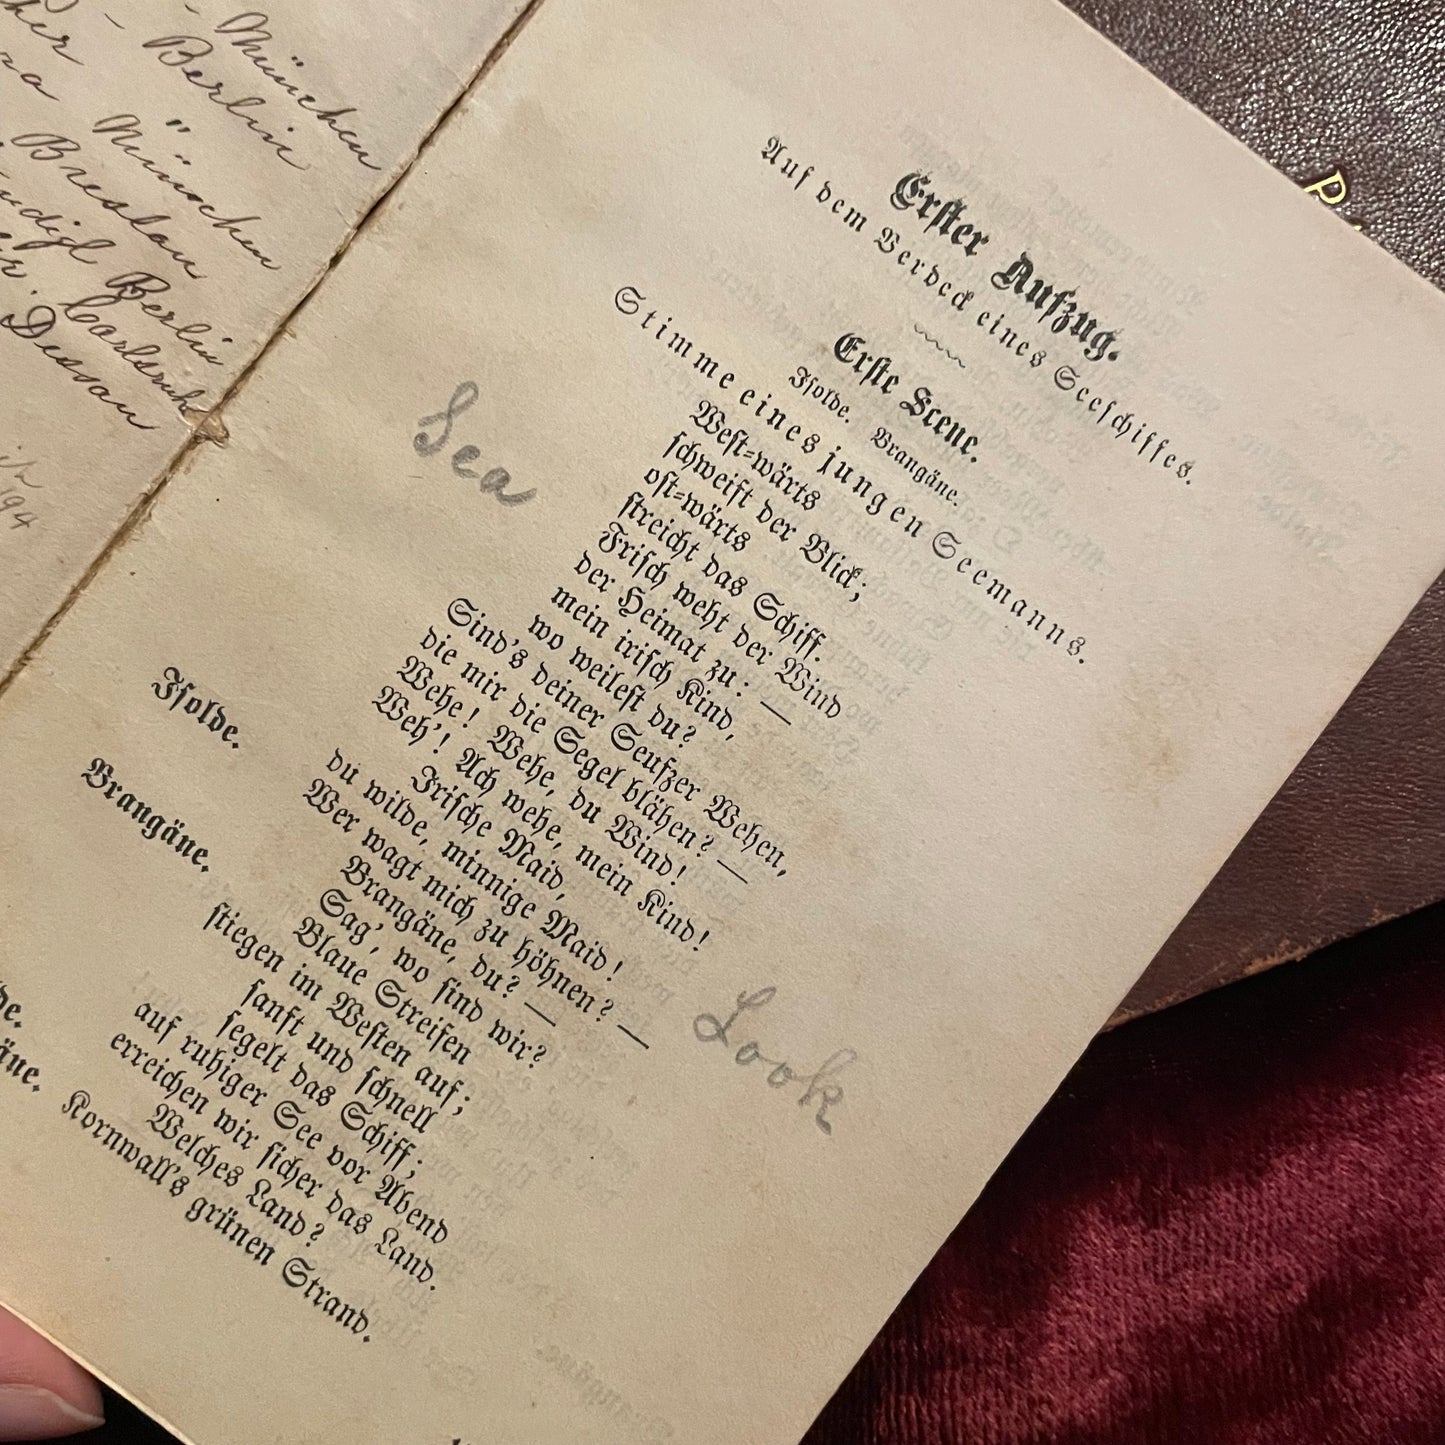 München
- Berlin
" München
Breslau
Berlin
Carlsruh
Dessau
94
Erster Aufzug.
Auf dem Verdeck eines Seeschiffes.
Erste Scene.
Isolde. Brangäne.
Stimme eines jungen Seemanns.
West-wärts
schweift der Blick;
ost-wärts
streicht das Schiff.
Frisch weht der Wind
der Heimat zu: —
mein irisch Kind,
wo weilest du?
Sind's deiner Seufzer Wehen,
die mir die Segel blähen? —
Wehe! Wehe, du Wind!
Weh'! Ach wehe, mein Kind!
Irische Maid,
du wilde, minnige Maid!
Isolde. Wer wagt mich zu höhnen? —
Brangäne, du? —
Sag', wo sind wir?
Brangäne. Blaue Streifen
stiegen im Westen auf;
sanft und schnell
segelt das Schiff;
auf ruhiger See vor Abend
erreichen wir sicher das Land.
Welches Land?
Kornwall's grünen Strand.
Sea
Look